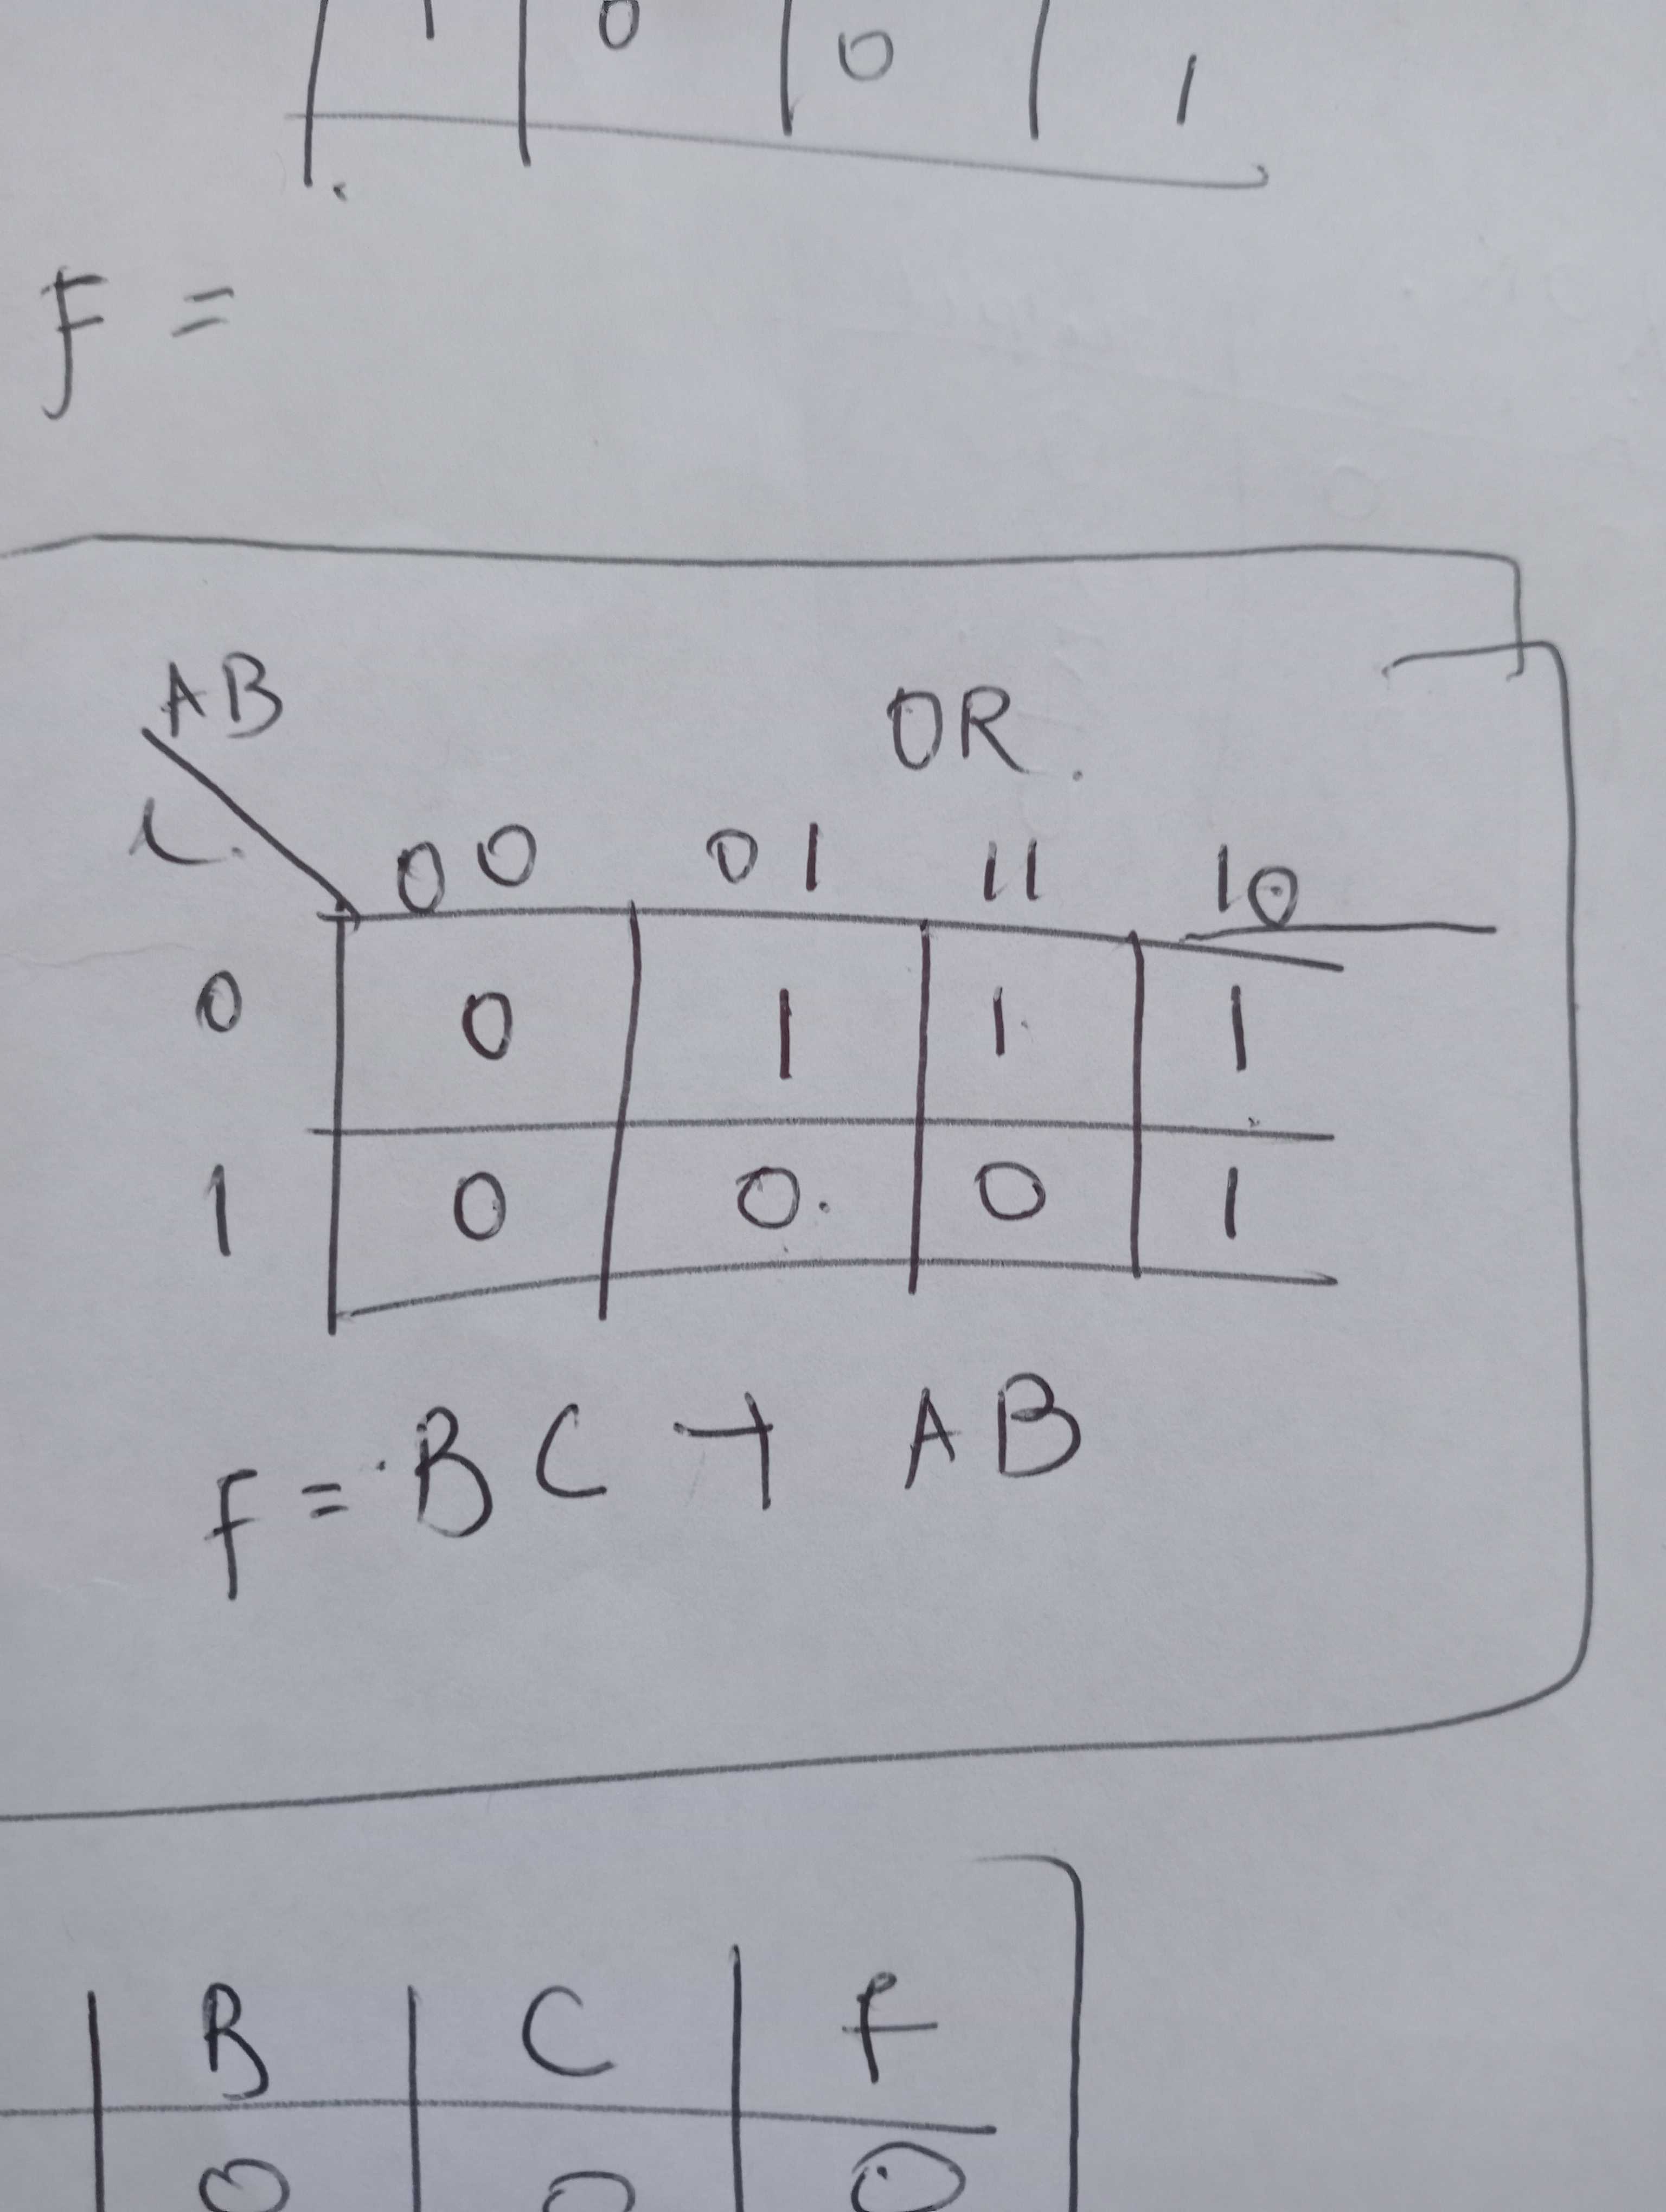 1 0 0 1
F =
AB OR.
C. 00 01 11 10
0 0 1 1 1
1 0 0 0 1
F = BC + AB
B C F
0 0 0